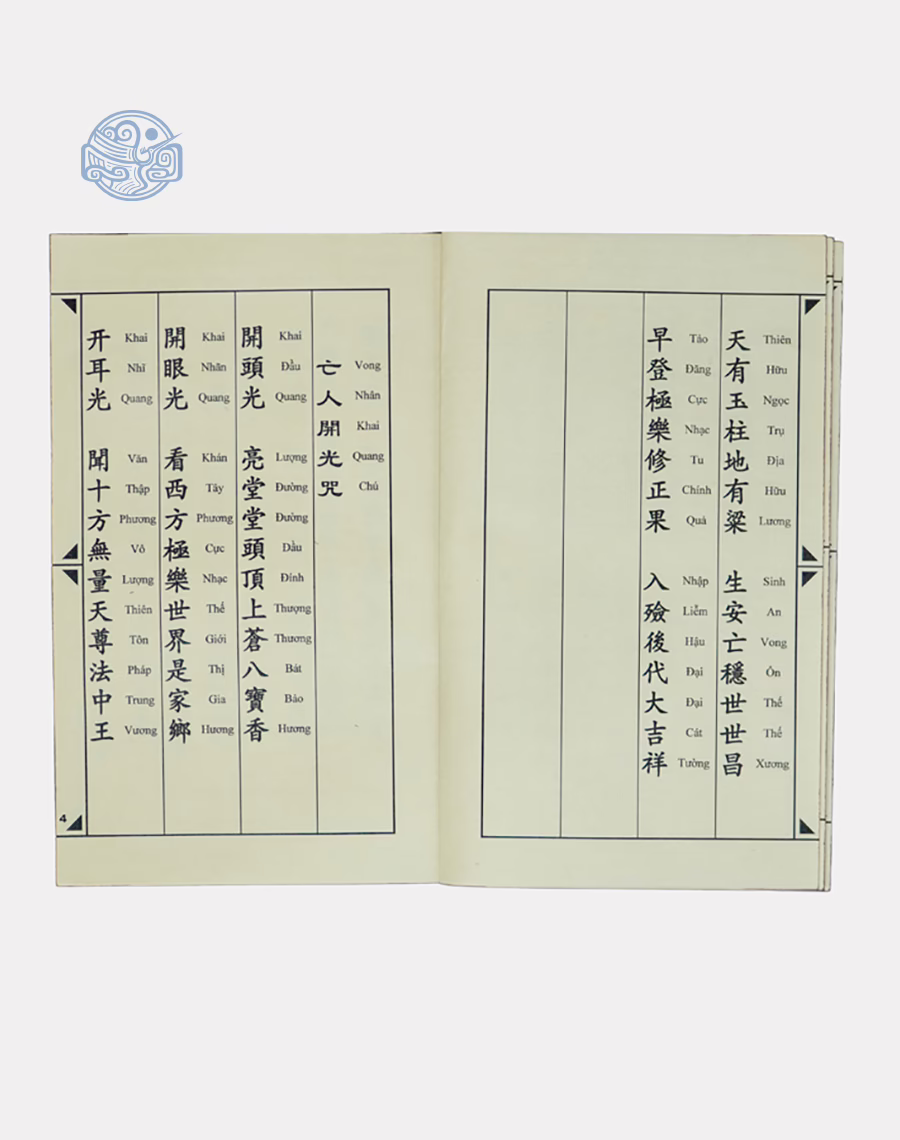 天有玉柱地有粱 生安亡穩世世昌
Thiên Hữu Ngọc Trụ Địa Hữu Lương Sinh An Vong Ổn Thế Thế Xương
早登極樂修正果 入殮後代大吉祥
Tảo Đăng Cực Nhạc Tu Chính Quả Nhập Liễm Hậu Đại Đại Cát Tường
亡人開光咒
Vong Nhân Khai Quang Chú
開頭光 亮堂堂頭頂上蒼八寶香
Khai Đầu Quang Lượng Đường Đường Đầu Đỉnh Thượng Thương Bát Bảo Hương
開眼光 看西方極樂世界是家鄉
Khai Nhãn Quang Khán Tây Phương Cực Nhạc Thế Giới Thị Gia Hương
开耳光 聞十方無量天尊法中王
Khai Nhĩ Quang Văn Thập Phương Vô Lượng Thiên Tôn Pháp Trung Vương
4